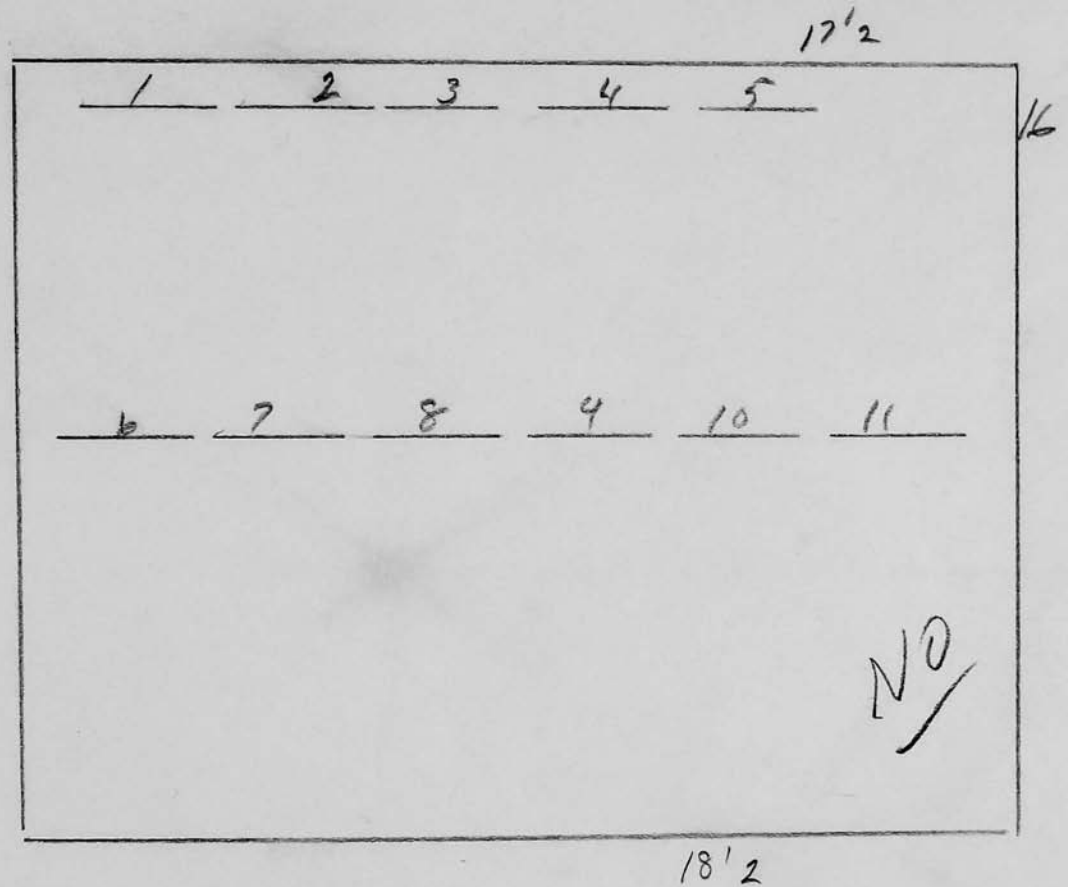 17'2
1 2 3 4 5
16
6 7 8 9 10 11
NO
18'2